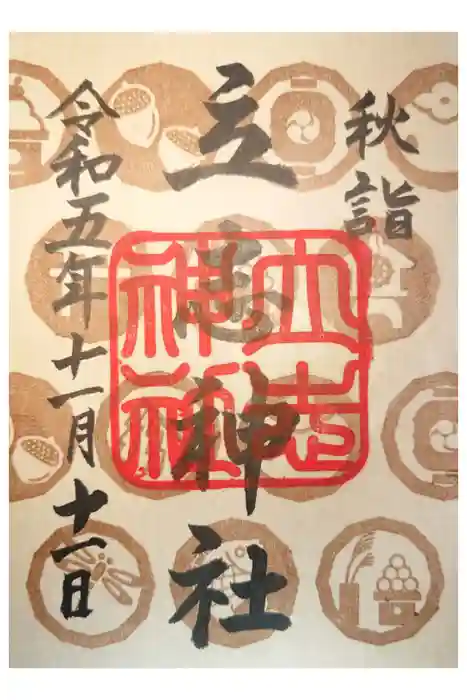 秋詣
立志神社
立志神社
令和五年十一月十一日